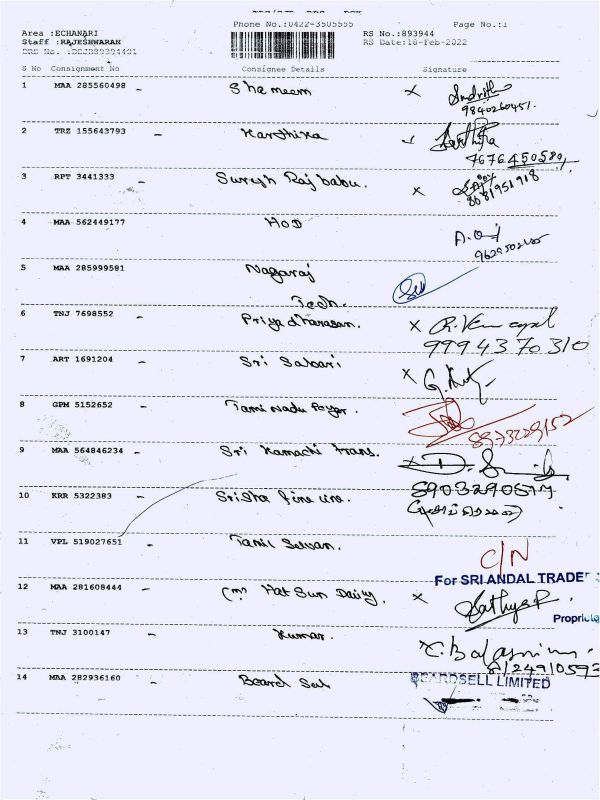 Phone No.:0422-3505555 Page No.:1
Area :ECHANARI RS No.:893944
Staff :RAJESHWARAN RS Date:18-Feb-2022
S No Consignment No Consignee Details Signature
1 MAA 285560498 - Shameem X
9840260451.
2 TRZ 155643793 - Karthika
7676450589,
3 RPT 3441333 - Suresh Raj babu. X
8681951918
4 MAA 562449177 HOD
5 MAA 285999581 Nagaraj
Tech.
6 TNJ 7698552 - Priyadharasan. X R. Venugopal
9994370310
7 ART 1691204 - Sri Sabari X
8 GPM 5152652 - Tamil nadu Paper.
8973229152
9 MAA 564846234 - Sri Kamachi trans. X
8903290577
10 KRR 5322383 - Srisha fine
11 VPL 519027651 - Tamil Selvan. C/N
For SRI ANDAL TRADE
12 MAA 281608444 - Hat Sun Dairy. X Sathya P.
Proprieto
13 TNJ 3100147 - Kumar.
8124910593
14 MAA 282936160 - Beard Sel BEARDSELL LIMITED